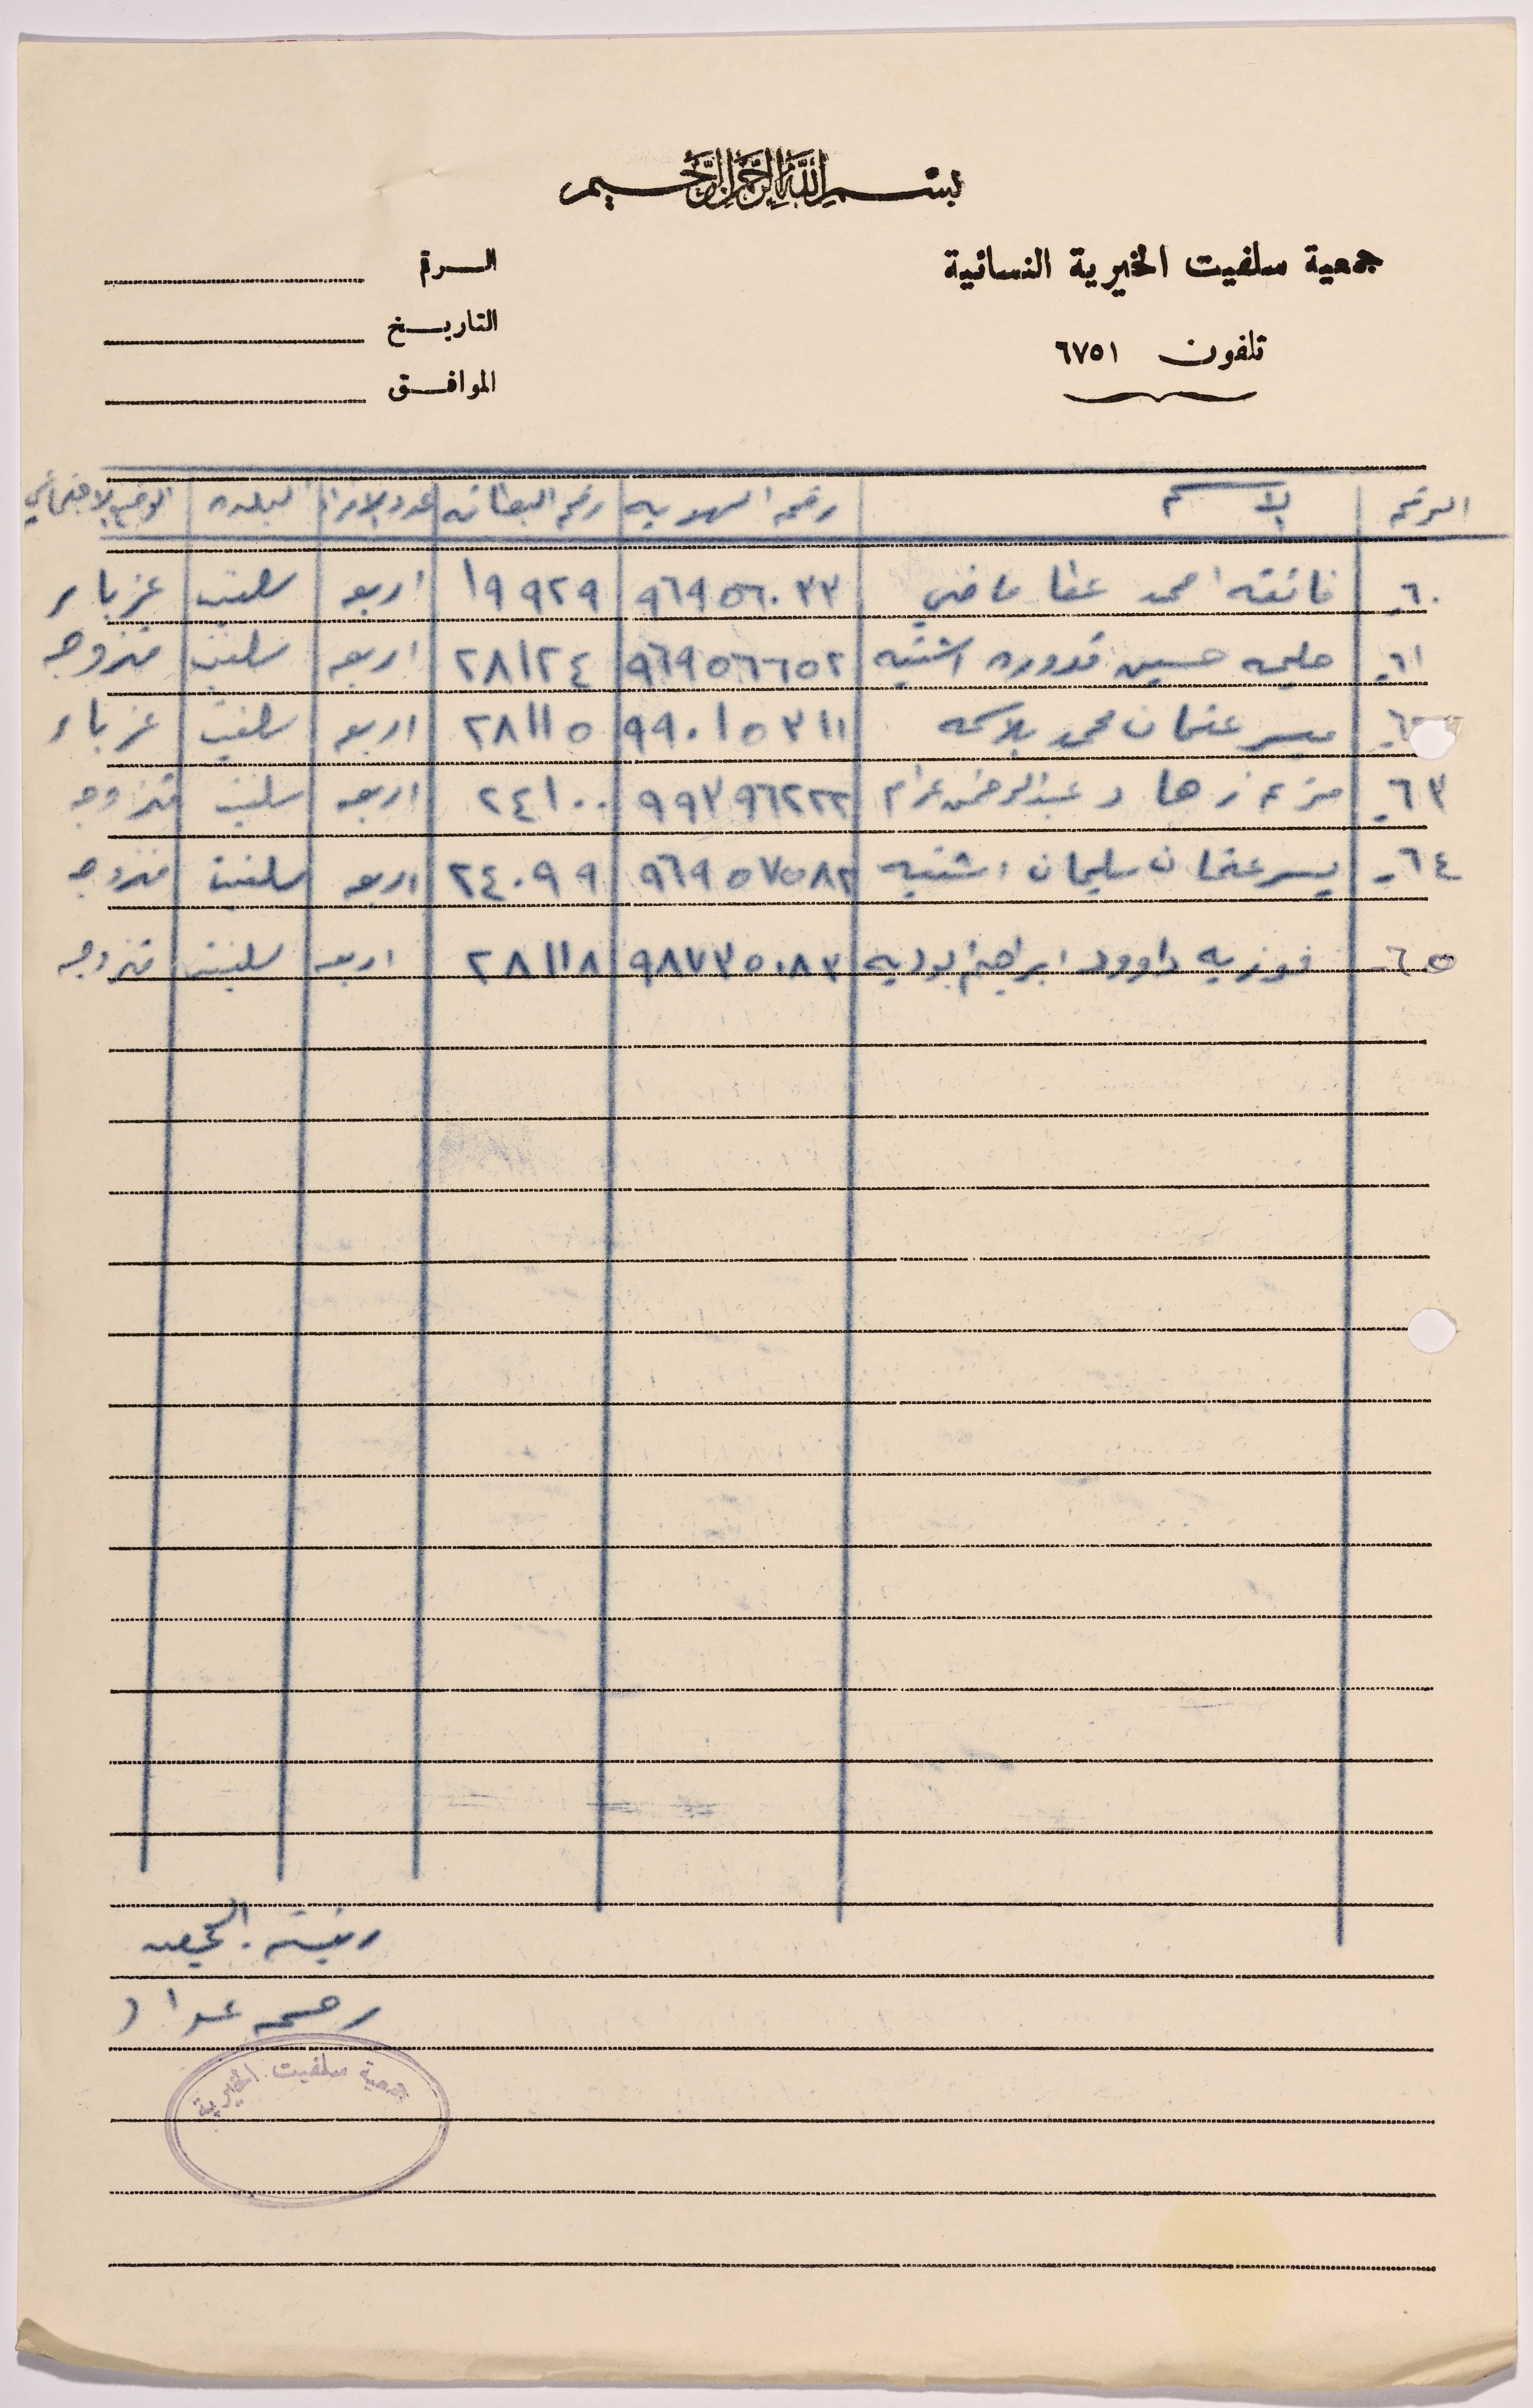 بسم الله الرحمن الرحيم
جمعية سلفيت الخيرية النسائية
الرقم
تلفون ٦٧٥١
التاريخ
الموافق
الرقم الاسم رقم الهويه رقم البطاقه عدد الافراد البلده الوضع الاجتماعي
٦٠- فائقه احمد عطا ماضي ٩٦٩٥٦٠٣٣ ١٩٩٢٩ اربعه سلفيت عزباء
٦١- حليمه حسين قدوره اشتيه ٩٦٩٥٦٦٥٢ ٢٨١٢٤ اربعه سلفيت متزوجه
ميسر عثمان محمد بلاسمه ٩٩٠١٥٣١١ ٢٨١١٥ اربعه سلفيت عزباء
٦٣- عبدالرحمن عزام ٩٩٣٩٦٢٢٢ ٢٤١٠٠ اربعه سلفيت متزوجه
٦٤- يسر عثمان سليمان اشتيه ٩٦٩٥٧٥٨٢ ٢٤٠٩٩ اربعه سلفيت متزوجه
٦٥- فوزيه داوود ابراهيم بوديه ٩٨٧٣٥٠٨٣ ٢٨١١٨ اربعه سلفيت متزوجه
رئيسة الجمعيه
جمعية سلفيت الخيرية